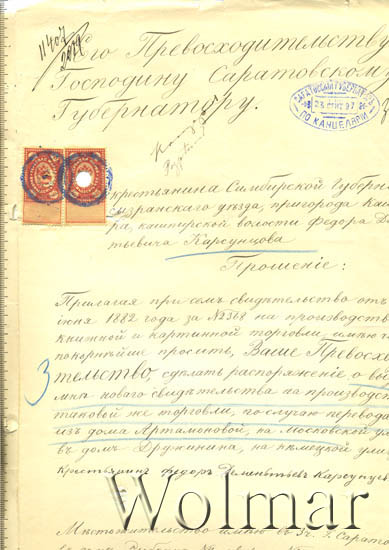 11407
Его Превосходительству
Господину Саратовскому
Губернатору.
САРАТОВСКІЙ ГУБЕРНАТОРЪ
ПО КАНЦЕЛЯРІИ
крестьянина Симбирской Губерн
Сызранскаго уѣзда, пригорода Каш
ка, кашпирской волости Федора Де
тьевича Карсунцова
Прошеніе:
Прилагая при семъ свидѣтельство отъ
іюня 1882 года за №2368 на производств
книжной и картинной торговли, имѣю
покорнѣйше просить, Ваше Превосхо
3
тельство, сдѣлать распоряженіе о вы
мнѣ новаго свидѣтельства на производст
таковой же торговли, по случаю перевода
изъ дома Артамоновой, на Московской ул
въ домъ Дружинина, на нѣмецкой ули
Крестьянинъ Федоръ Дементьевъ Карсунцев
Wolmar
Мѣстожительство имѣю въ г. Сарато